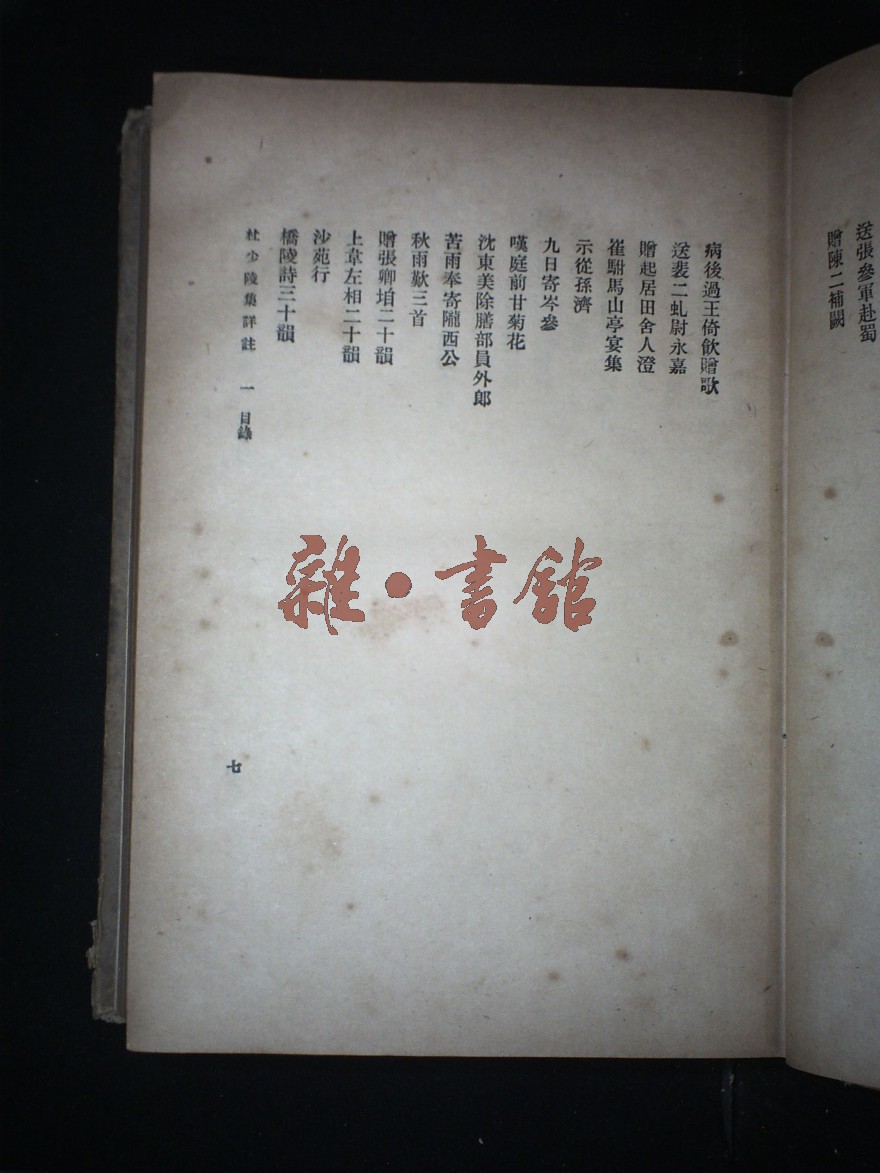 送張參軍赴蜀
贈陳二補闕
病後過王倚飲贈歌
送裴二虬尉永嘉
贈起居田舍人澄
崔駙馬山亭宴集
示從孫濟
九日寄岑參
嘆庭前甘菊花
沈東美除膳部員外郎
苦雨奉寄隴西公
秋雨歎三首
贈張卿垍二十韻
上韋左相二十韻
沙苑行
橋陵詩三十韻
杜少陵集詳註 一 目錄
七
雜·書館